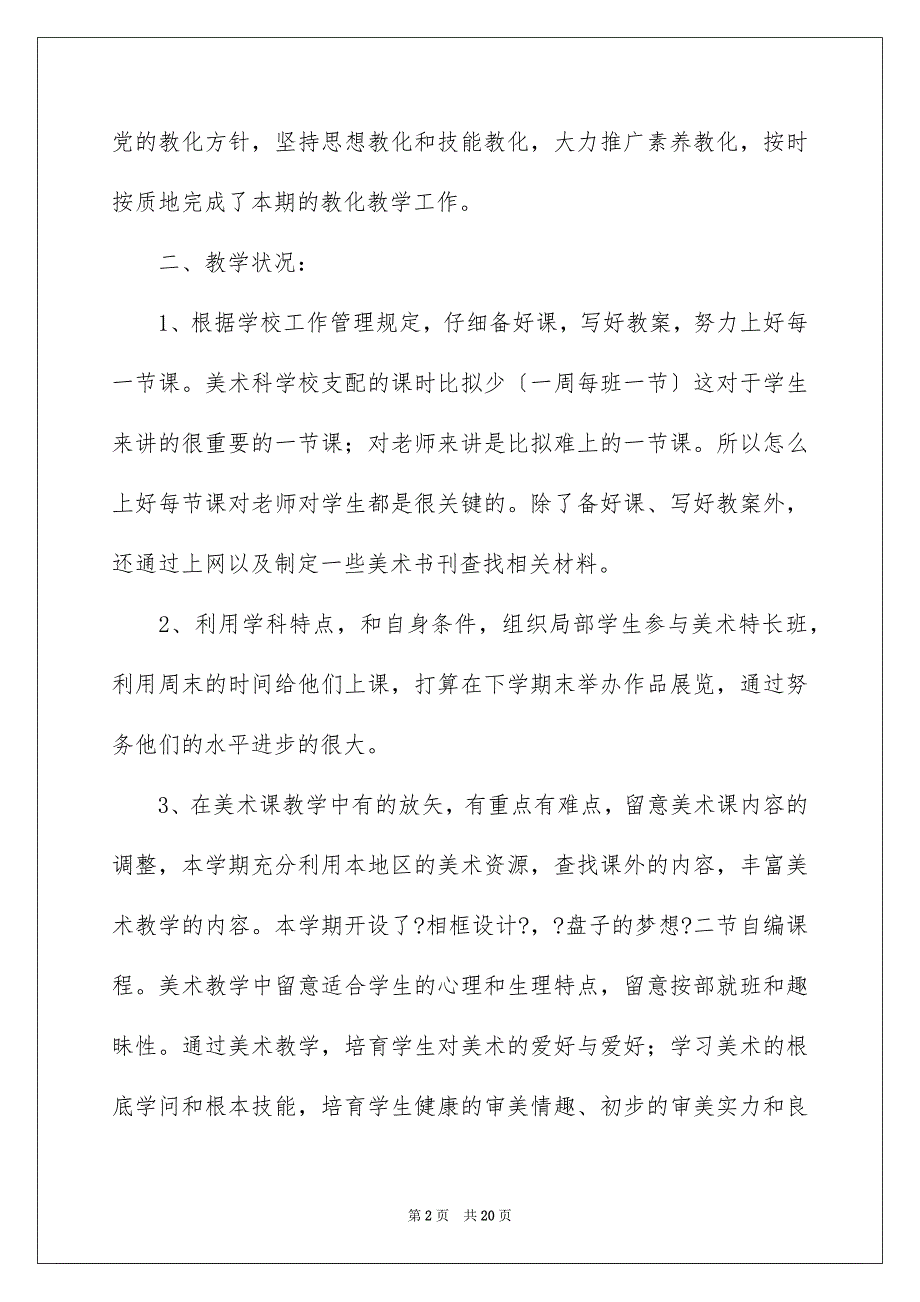 党的教化方针，坚持思想教化和技能教化，大力推广素养教化，按时
按质地完成了本期的教化教学工作。
二、教学状况：
1、根据学校工作管理规定，仔细备好课，写好教案，努力上好每
一节课。美术科学校支配的课时比拟少〔一周每班一节〕这对于学生
来讲的很重要的一节课；对老师来讲是比拟难上的一节课。所以怎么
上好每节课对老师对学生都是很关键的。除了备好课、写好教案外，
还通过上网以及制定一些美术书刊查找相关材料。
2、利用学科特点，和自身条件，组织局部学生参与美术特长班，
利用周末的时间给他们上课，打算在下学期末举办作品展览，通过努
务他们的水平进步的很大。
3、在美术课教学中有的放矢，有重点有难点，留意美术课内容的
调整，本学期充分利用本地区的美术资源，查找课外的内容，丰富美
术教学的内容。本学期开设了?相框设计?，?盘子的梦想?二节自编课
程。美术教学中留意适合学生的心理和生理特点，留意按部就班和趣
味性。通过美术教学，培育学生对美术的爱好与爱好；学习美术的根
底学问和根本技能，培育学生健康的审美情趣、初步的审美实力和良
第 2 页 共 20 页